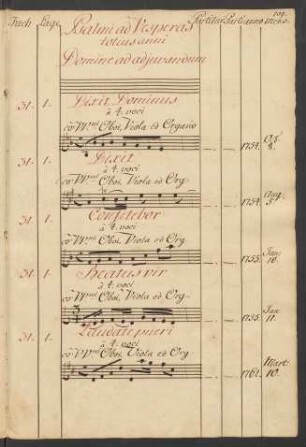 Fach. Lage. Partitur Part: anno mens.
Psalmi ad Vesperas
totius anni
Domine ad adjuvandum
31. 1. Dixit Dominus
à 4. voci
co VV.ni Oboi, Viola ed Organo
1754.
31. 1. Dixit
à 4. voci
co VV.ni Oboi, Viola ed Org.
1754. Aug. 5.
31. 1. Confitebor
à 4. voci
co VV.ni Oboi, Viola ed Org
1755. Jan: 10.
31. 1. Beatus vir
à 4. voci
co VV.ni Oboi, Viola ed Org.
1755. Jan 11.
31. 1. Laudate pueri
à 4. voci
co VV.ni Oboi, Viola ed Org.
1761. Mart: 10.